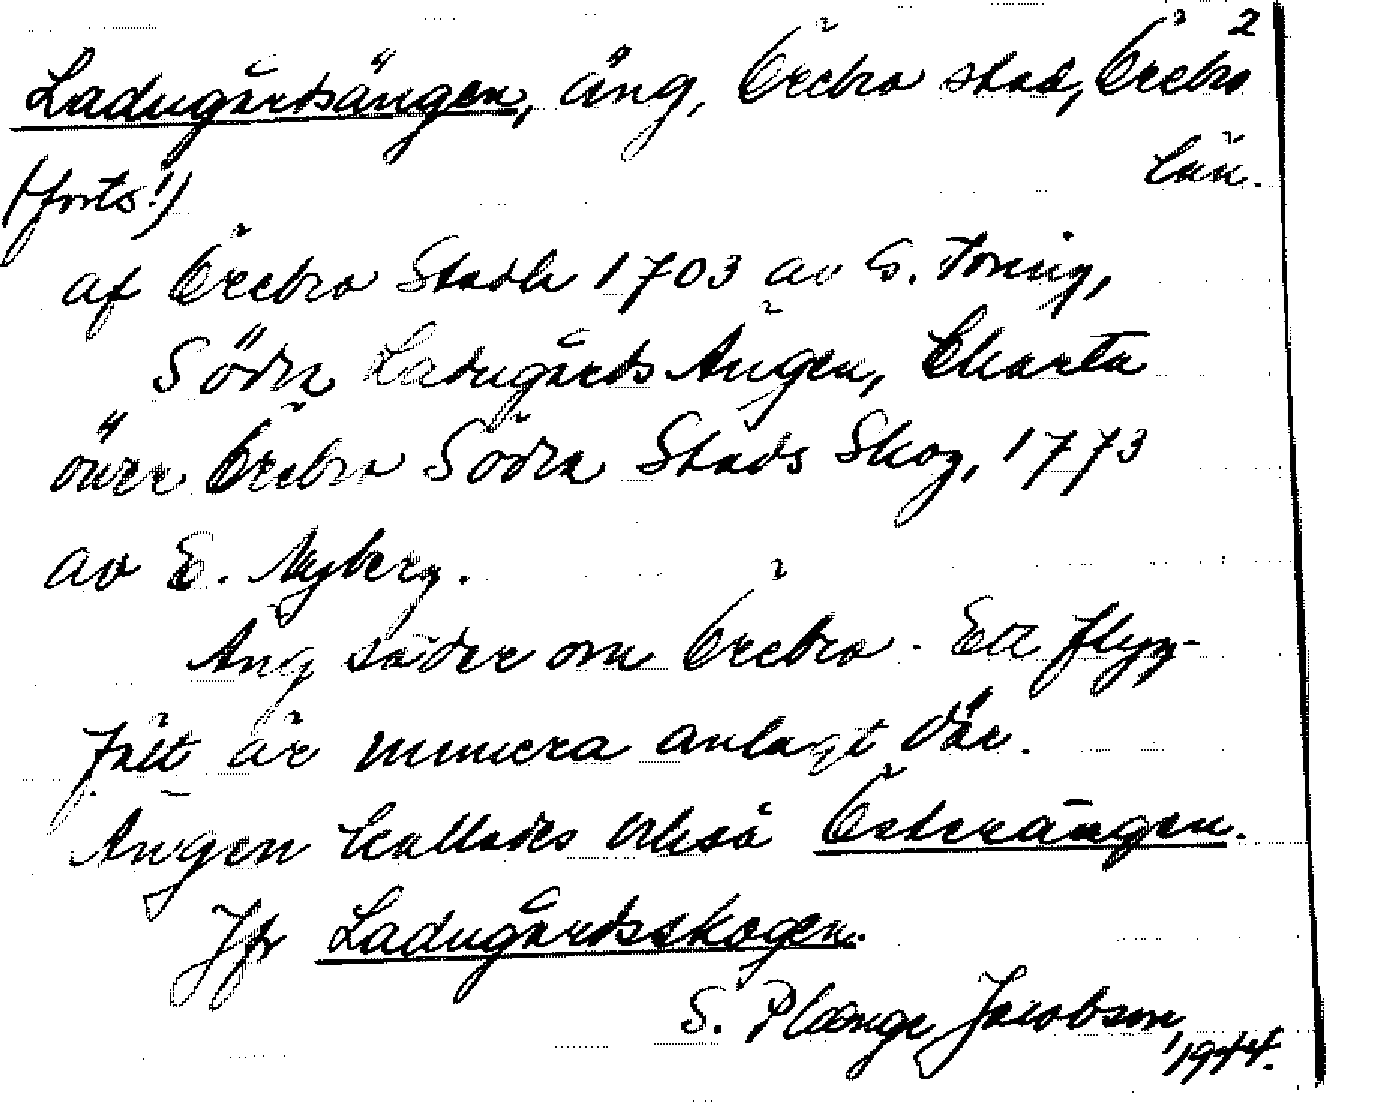 2
Ladugårdsängen, äng, Örebro stad, Örebro
län.
(forts!)
af Örebro Stadh 1703 av G. Toring,
Södra Ladugårds Ängen, Charta
öwer Örebro Södra Stads Skog, 1773
av E. Nyberg.
Äng söder om Örebro. Ett flyg-
fält är numera anlagt där.
Ängen kallades också Österängen.
Jfr Ladugårdsskogen.
S. Plænge Jacobson,
1944.